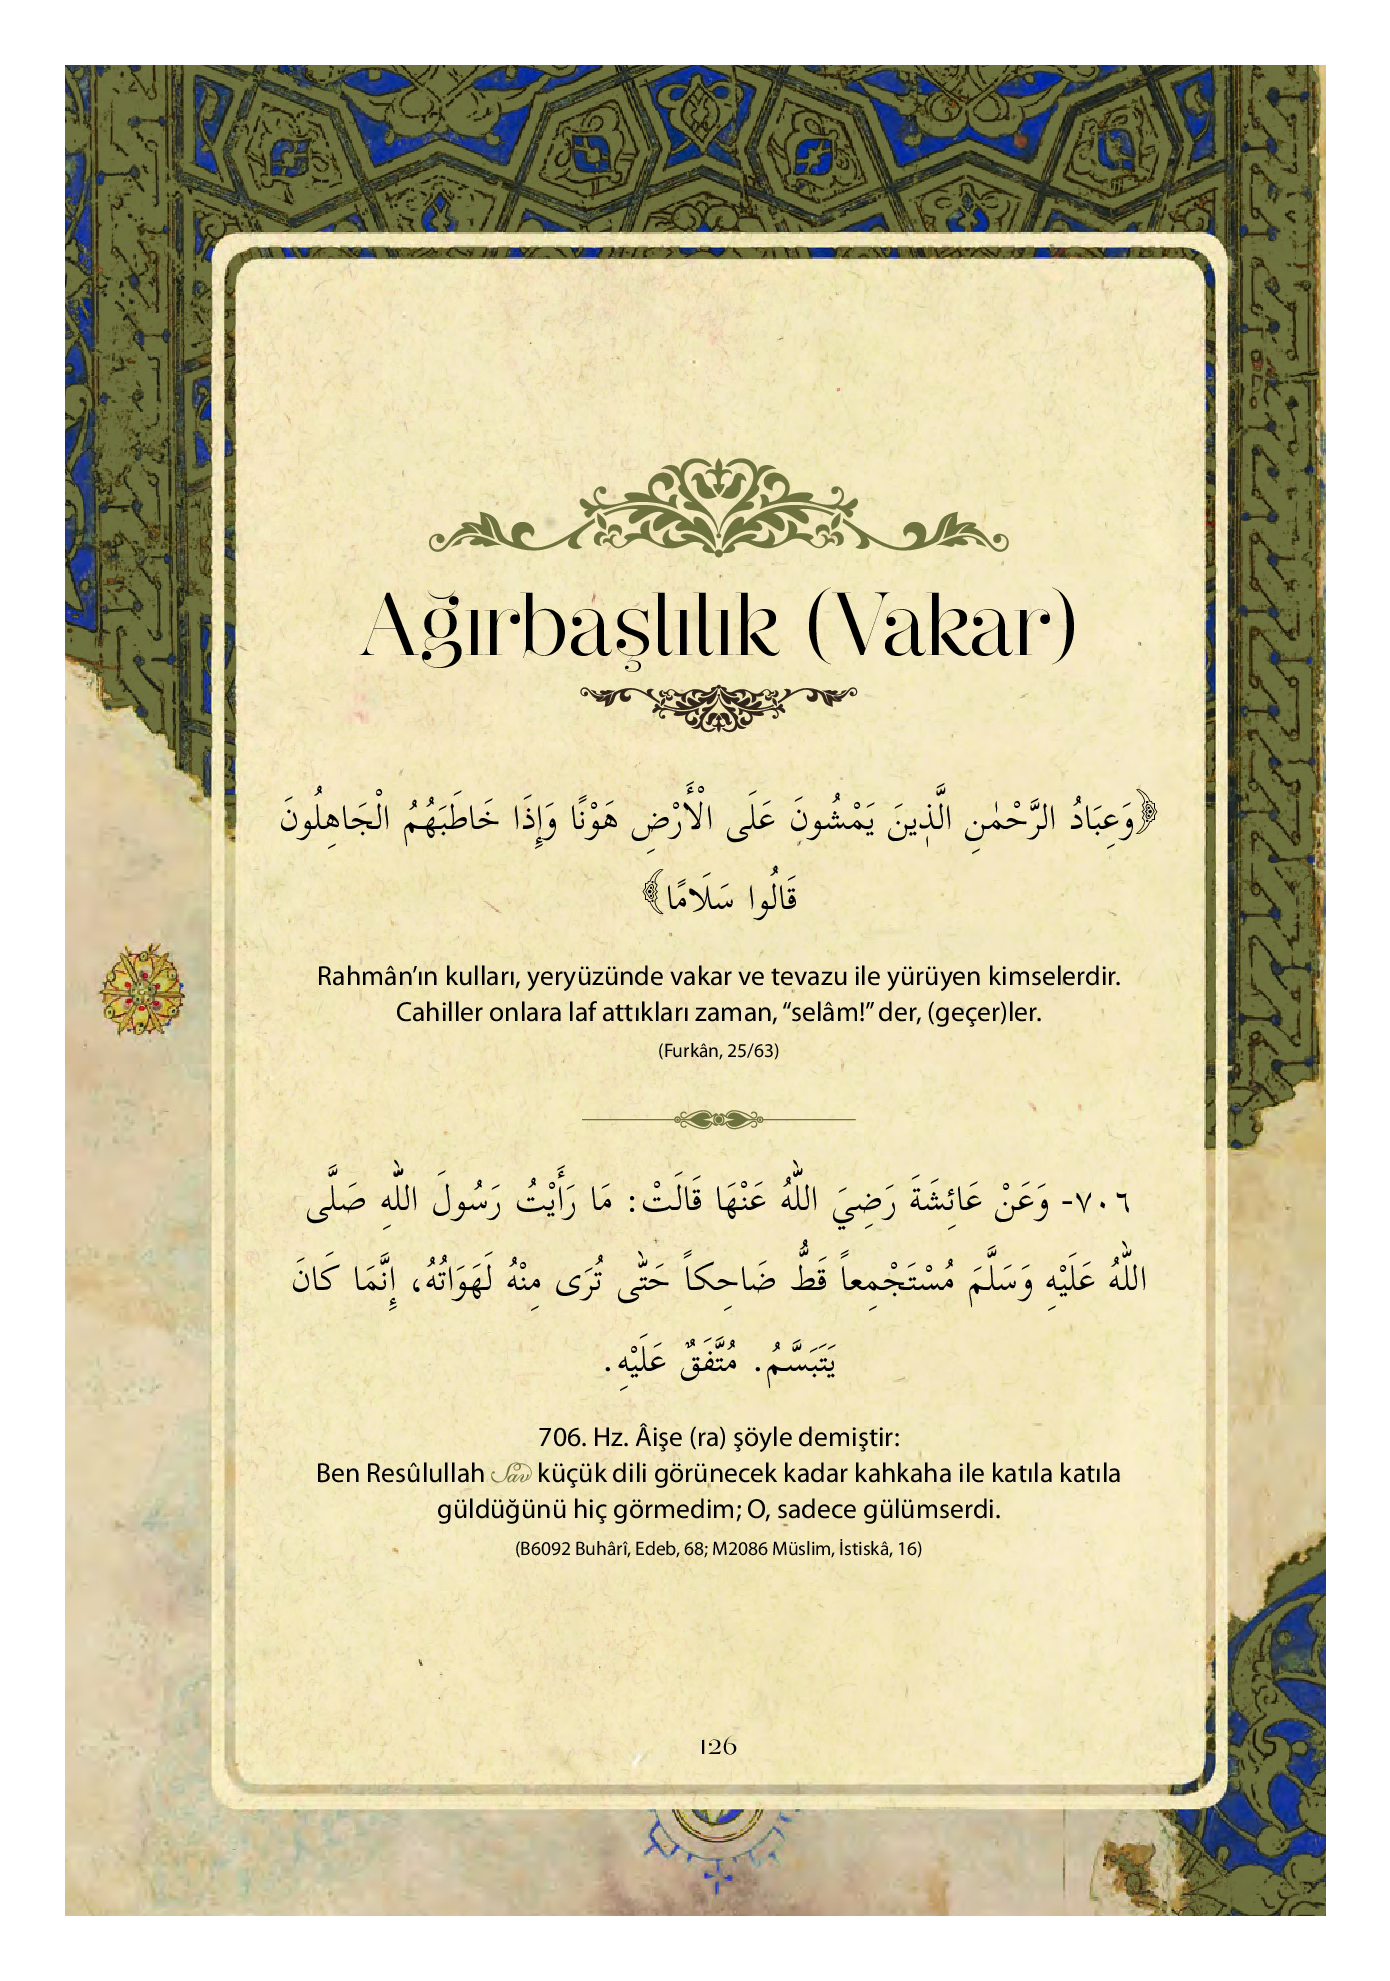 Ağırbaşlılık (Vakar)
﴿وَعِبَادُ الرَّحْمٰنِ الَّذٖينَ يَمْشُونَ عَلَى الْأَرْضِ هَوْنًا وَإِذَا خَاطَبَهُمُ الْجَاهِلُونَ
قَالُوا سَلَامًا﴾
Rahmân’ın kulları, yeryüzünde vakar ve tevazu ile yürüyen kimselerdir.
Cahiller onlara laf attıkları zaman, “selâm!” der, (geçer)ler.
(Furkân, 25/63)
٧٠٦- وَعَنْ عَائِشَةَ رَضِيَ اللّٰهُ عَنْهَا قَالَتْ: مَا رَأَيْتُ رَسُولَ اللّٰهِ صَلَّى
اللّٰهُ عَلَيْهِ وَسَلَّمَ مُسْتَجْمِعاً قَطُّ ضَاحِكاً حَتّٰى تُرَى مِنْهُ لَهَوَاتُهُ، إِنَّمَا كَانَ
يَتَبَسَّمُ. مُتَّفَقٌ عَلَيْهِ.
706. Hz. Âişe (ra) şöyle demiştir:
Ben Resûlullah sav küçük dili görünecek kadar kahkaha ile katıla katıla
güldüğünü hiç görmedim; O, sadece gülümserdi.
(B6092 Buhârî, Edeb, 68; M2086 Müslim, İstiskâ, 16)
126